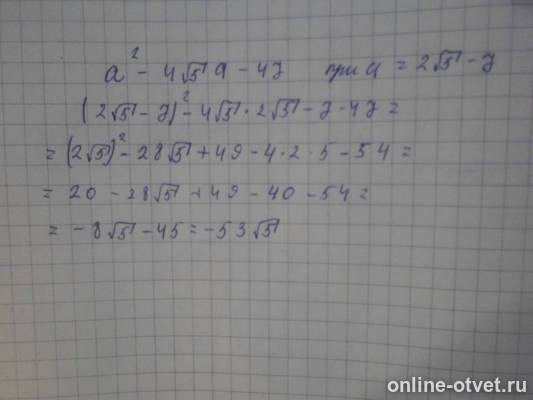 a² - 4√5 a - 47 при a = 2√5 - 7
(2√5 - 7)² - 4√5 · 2√5 - 7 - 47 =
= (2√5)² - 28√5 + 49 - 4 · 2 · 5 - 54 =
= 20 - 28√5 + 49 - 40 - 54 =
= - 8√5 - 45 = - 53√5
online-otvet.ru